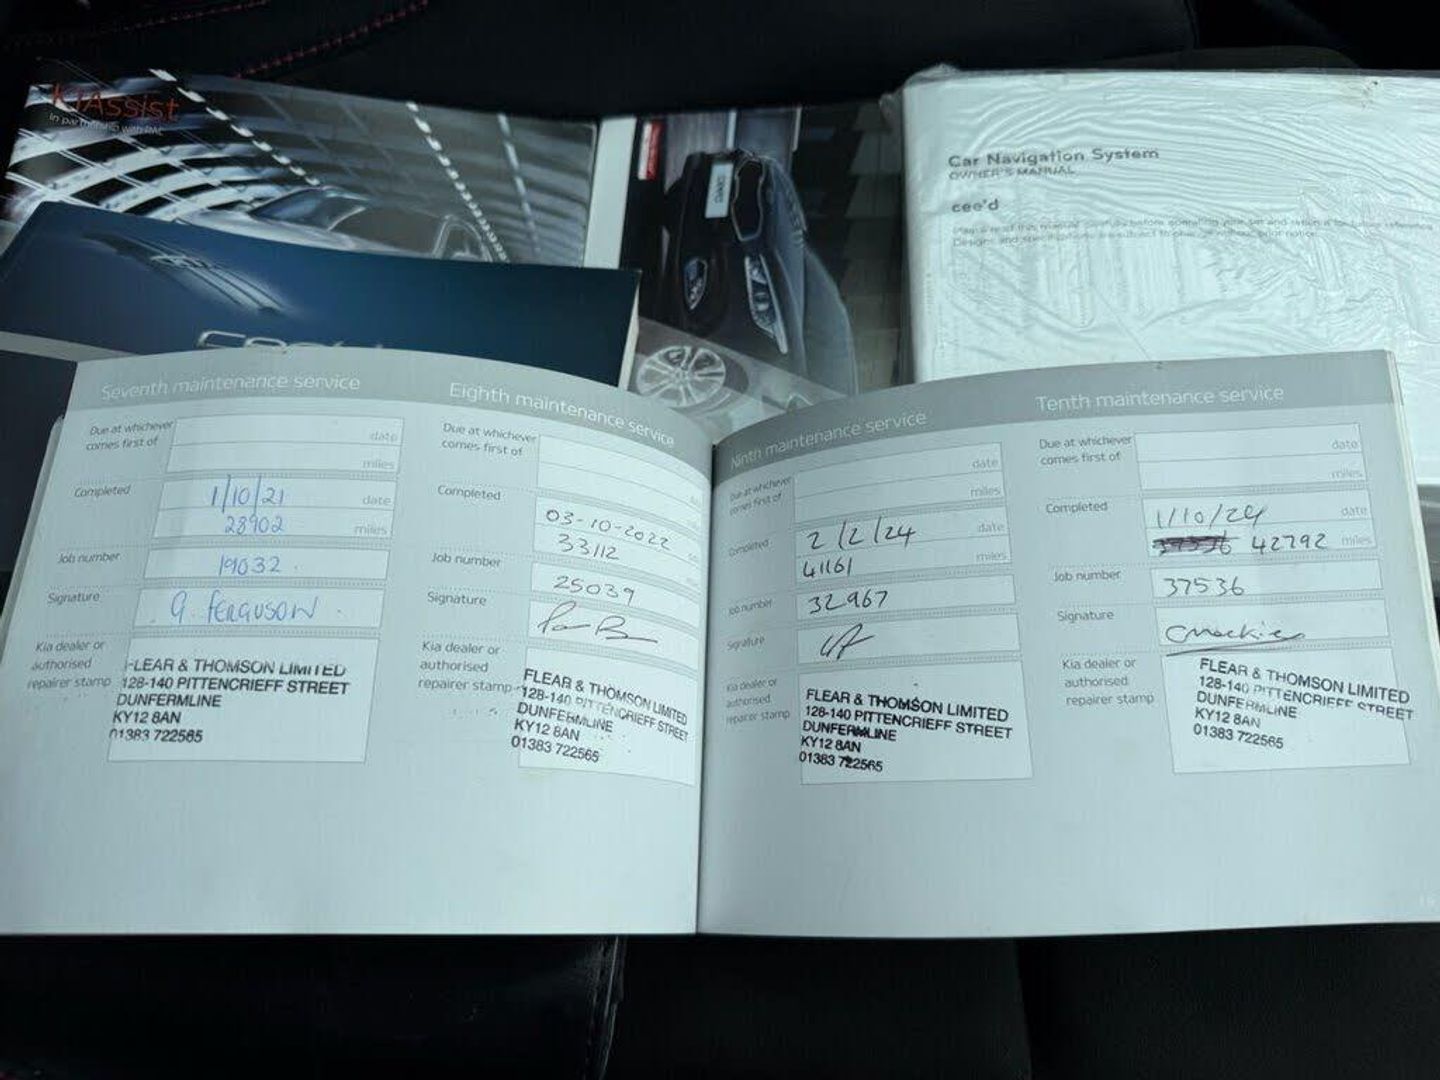 KIAssist
in partnership with RAC
Car Navigation System
OWNER'S MANUAL
cee'd
Seventh maintenance service
Due at whichever
comes first of
date
miles
Completed
1/10/21
date
28902
miles
Job number
19032
Signature
G. FERGUSON
Kia dealer or
authorised
repairer stamp
FLEAR & THOMSON LIMITED
128-140 PITTENCRIEFF STREET
DUNFERMLINE
KY12 8AN
01383 722565
Eighth maintenance service
Due at whichever
comes first of
Completed
03-10-2022
33112
Job number
25039
Signature
Kia dealer or
authorised
repairer stamp
FLEAR & THOMSON LIMITED
128-140 PITTENCRIEFF STREET
DUNFERMLINE
KY12 8AN
01383 722565
Ninth maintenance service
Due at whichever
comes first of
date
miles
Completed
2/2/24
date
41161
miles
Job number
32967
Signature
Kia dealer or
authorised
repairer stamp
FLEAR & THOMSON LIMITED
128-140 PITTENCRIEFF STREET
DUNFERMLINE
KY12 8AN
01383 722565
Tenth maintenance service
Due at whichever
comes first of
date
miles
Completed
1/10/24
date
37536 42792 miles
Job number
37536
Signature
Kia dealer or
authorised
repairer stamp
FLEAR & THOMSON LIMITED
128-140 PITTENCRIEFF STREET
DUNFERMLINE
KY12 8AN
01383 722565